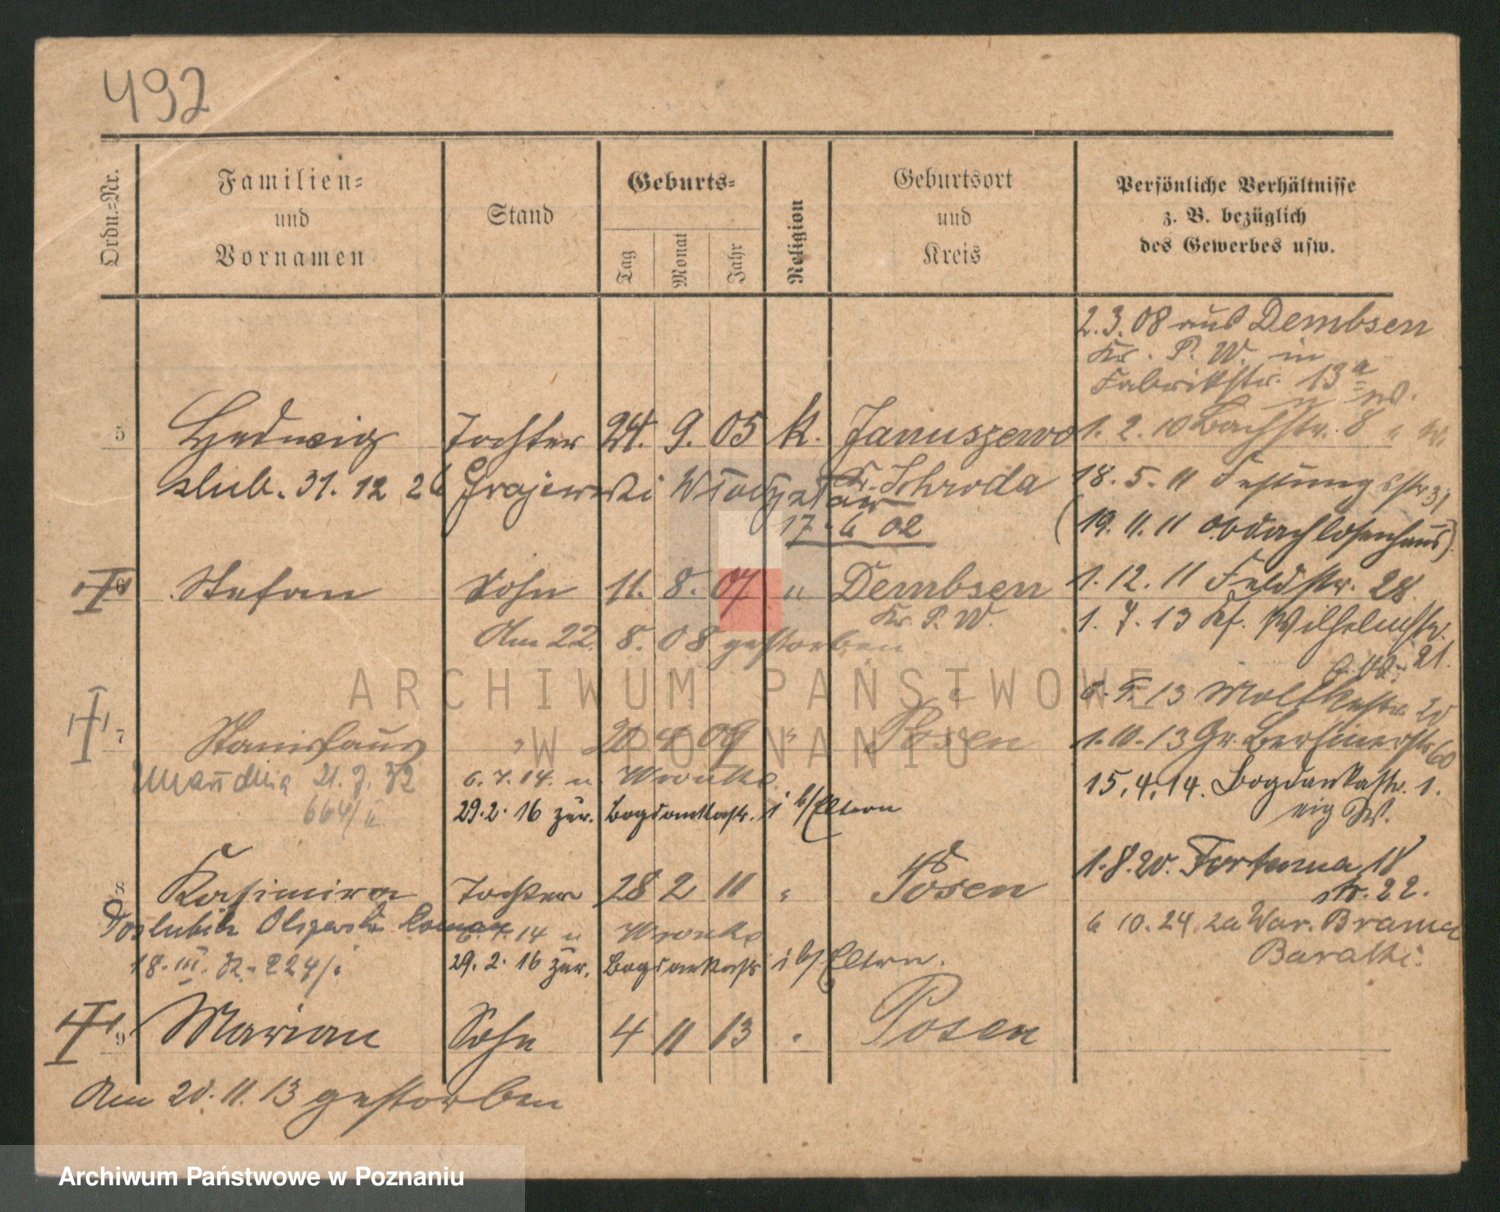 492
Ordn.=Nr.
Familien=
und
Vornamen
Stand
Geburts=
Tag
Monat
Jahr
Religion
Geburtsort
und
Kreis
Persönliche Verhältnisse
z. B. bezüglich
des Gewerbes usw.
2.3.08 aus Dembsen
Kr. P. W. in
Fabrikstr. 13a
5 Hedwig Tochter 24. 9. 05 k. Januszewo 1. 2. 10 Bachstr. 8
slub. 31. 12 26 Grajewski Kr. Schroda 18. 5. 11 Festungsstr. 31
17 6 02 (19. 11. 11 Obdachlosenhaus)
6 Stefan Sohn 11. 8. 07 " Dembsen 1. 12. 11 Feldstr. 28
Kr. P. W. 1. 7. 13 Kf. Wilhelmstr. 21.
Am 22. 8. 08 gestorben
13 Moltkestr. 20
7 Stanislaus " 09 " Posen 1.10.13 Gr. Berlinerstr. 60
21. 7. 32 6. 7. 14. n Wronke 15. 4. 14. Bogdankastr. 1.
664/II 29. 2. 16 zur. Bogdankastr. 1 b/Eltern
1.8.20. Fortuna 18
str. 22.
8 Kasimira Tochter 28 2 11 " Posen
Poslubiła Olszewski Roman 6. 7. 14 n Wronke 6 10. 24. za War. Bramą
18. III. 32 - 224/i 29. 2. 16 zur. Bogdankastr. 1 b/Eltern.
9 Marian Sohn 4 11 13 " Posen
Am 20. 11. 13 gestorben
ARCHIWUM PAŃSTWOWE
W POZNANIU
Archiwum Państwowe w Poznaniu